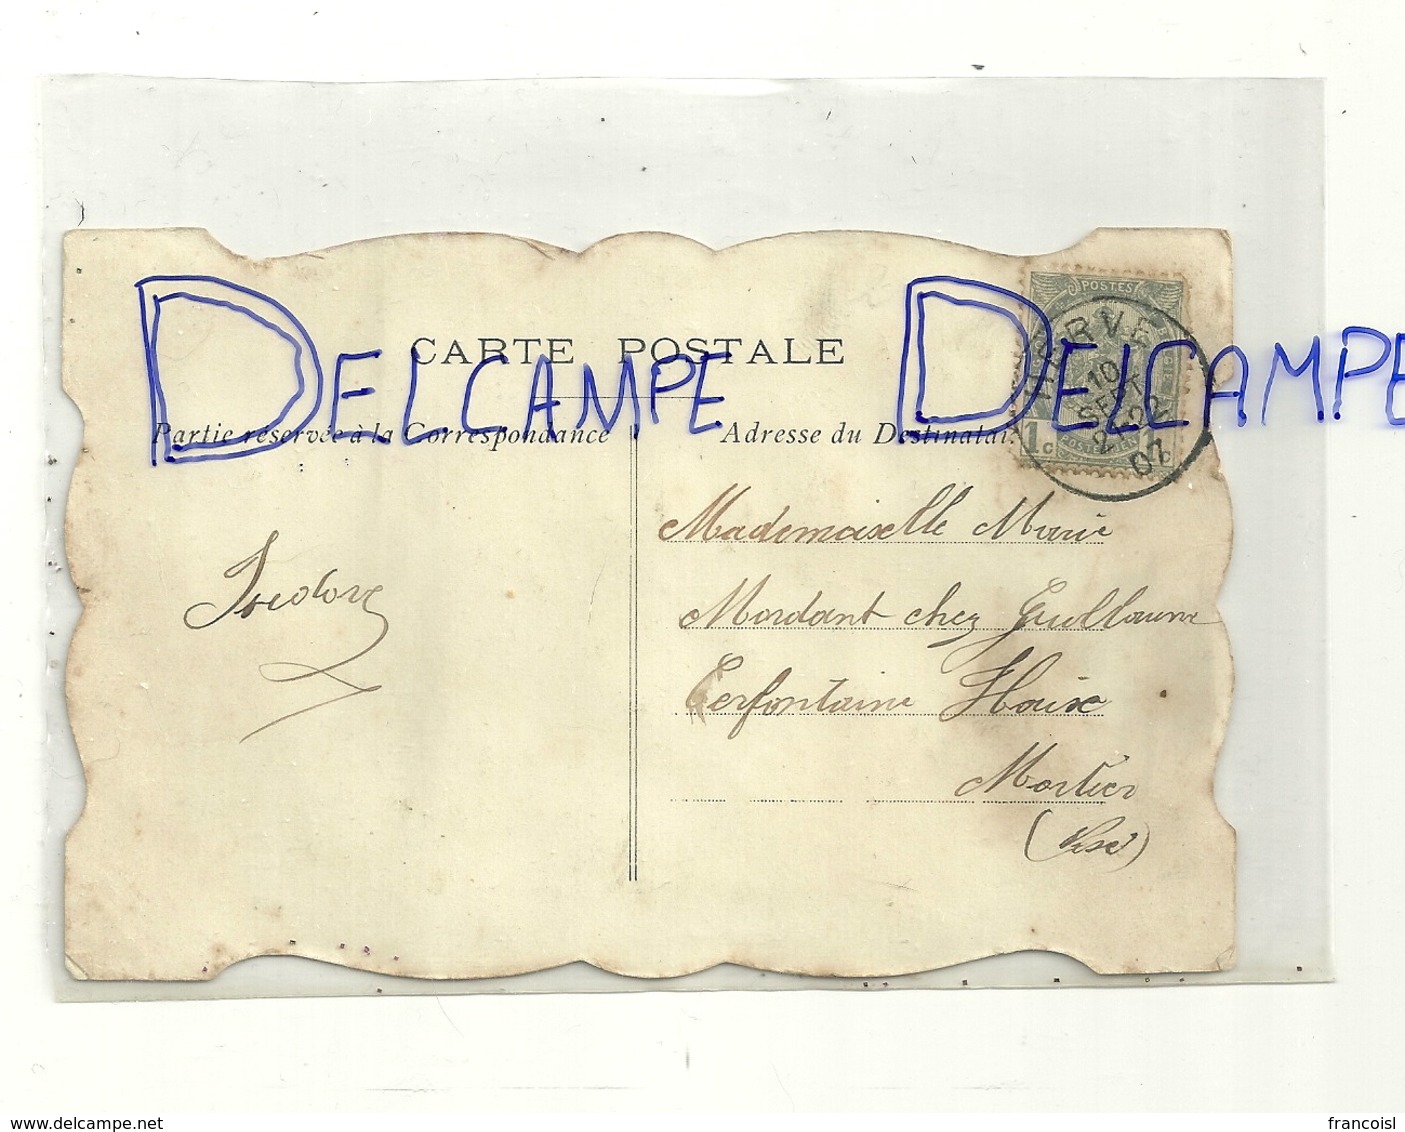 CARTE POSTALE
DELCAMPE DELCAMPE
Partie réservée à la Correspondance
Adresse du Destinatai
POSTES
HERVE
10
SEPT
21-22
07
1c 1c
Isidore
Mademoiselle Marie
Mordant chez Guillaume
Cerfontaine Houise
Mortier
(Visé)
www.delcampe.net
francoisl